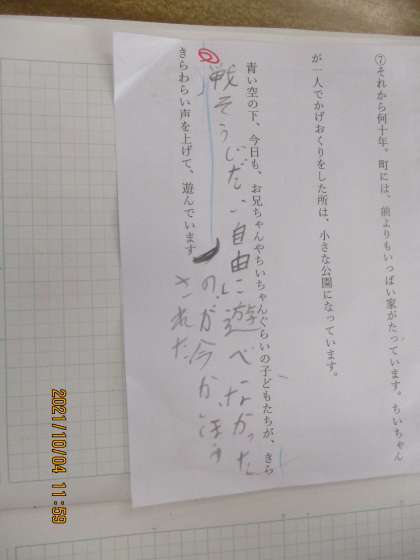 ⑦それから何十年。町には、前よりもいっぱい家がたっています。ちいちゃん
が一人でかげおくりをした所は、小さな公園になっています。
青い空の下、今日も、お兄ちゃんやちいちゃんぐらいの子どもたちが、きら
きらわらい声を上げて、遊んでいます
戦そうじだい、自由に遊べなかった
のが今かいほう
された
2021/10/04 11:59